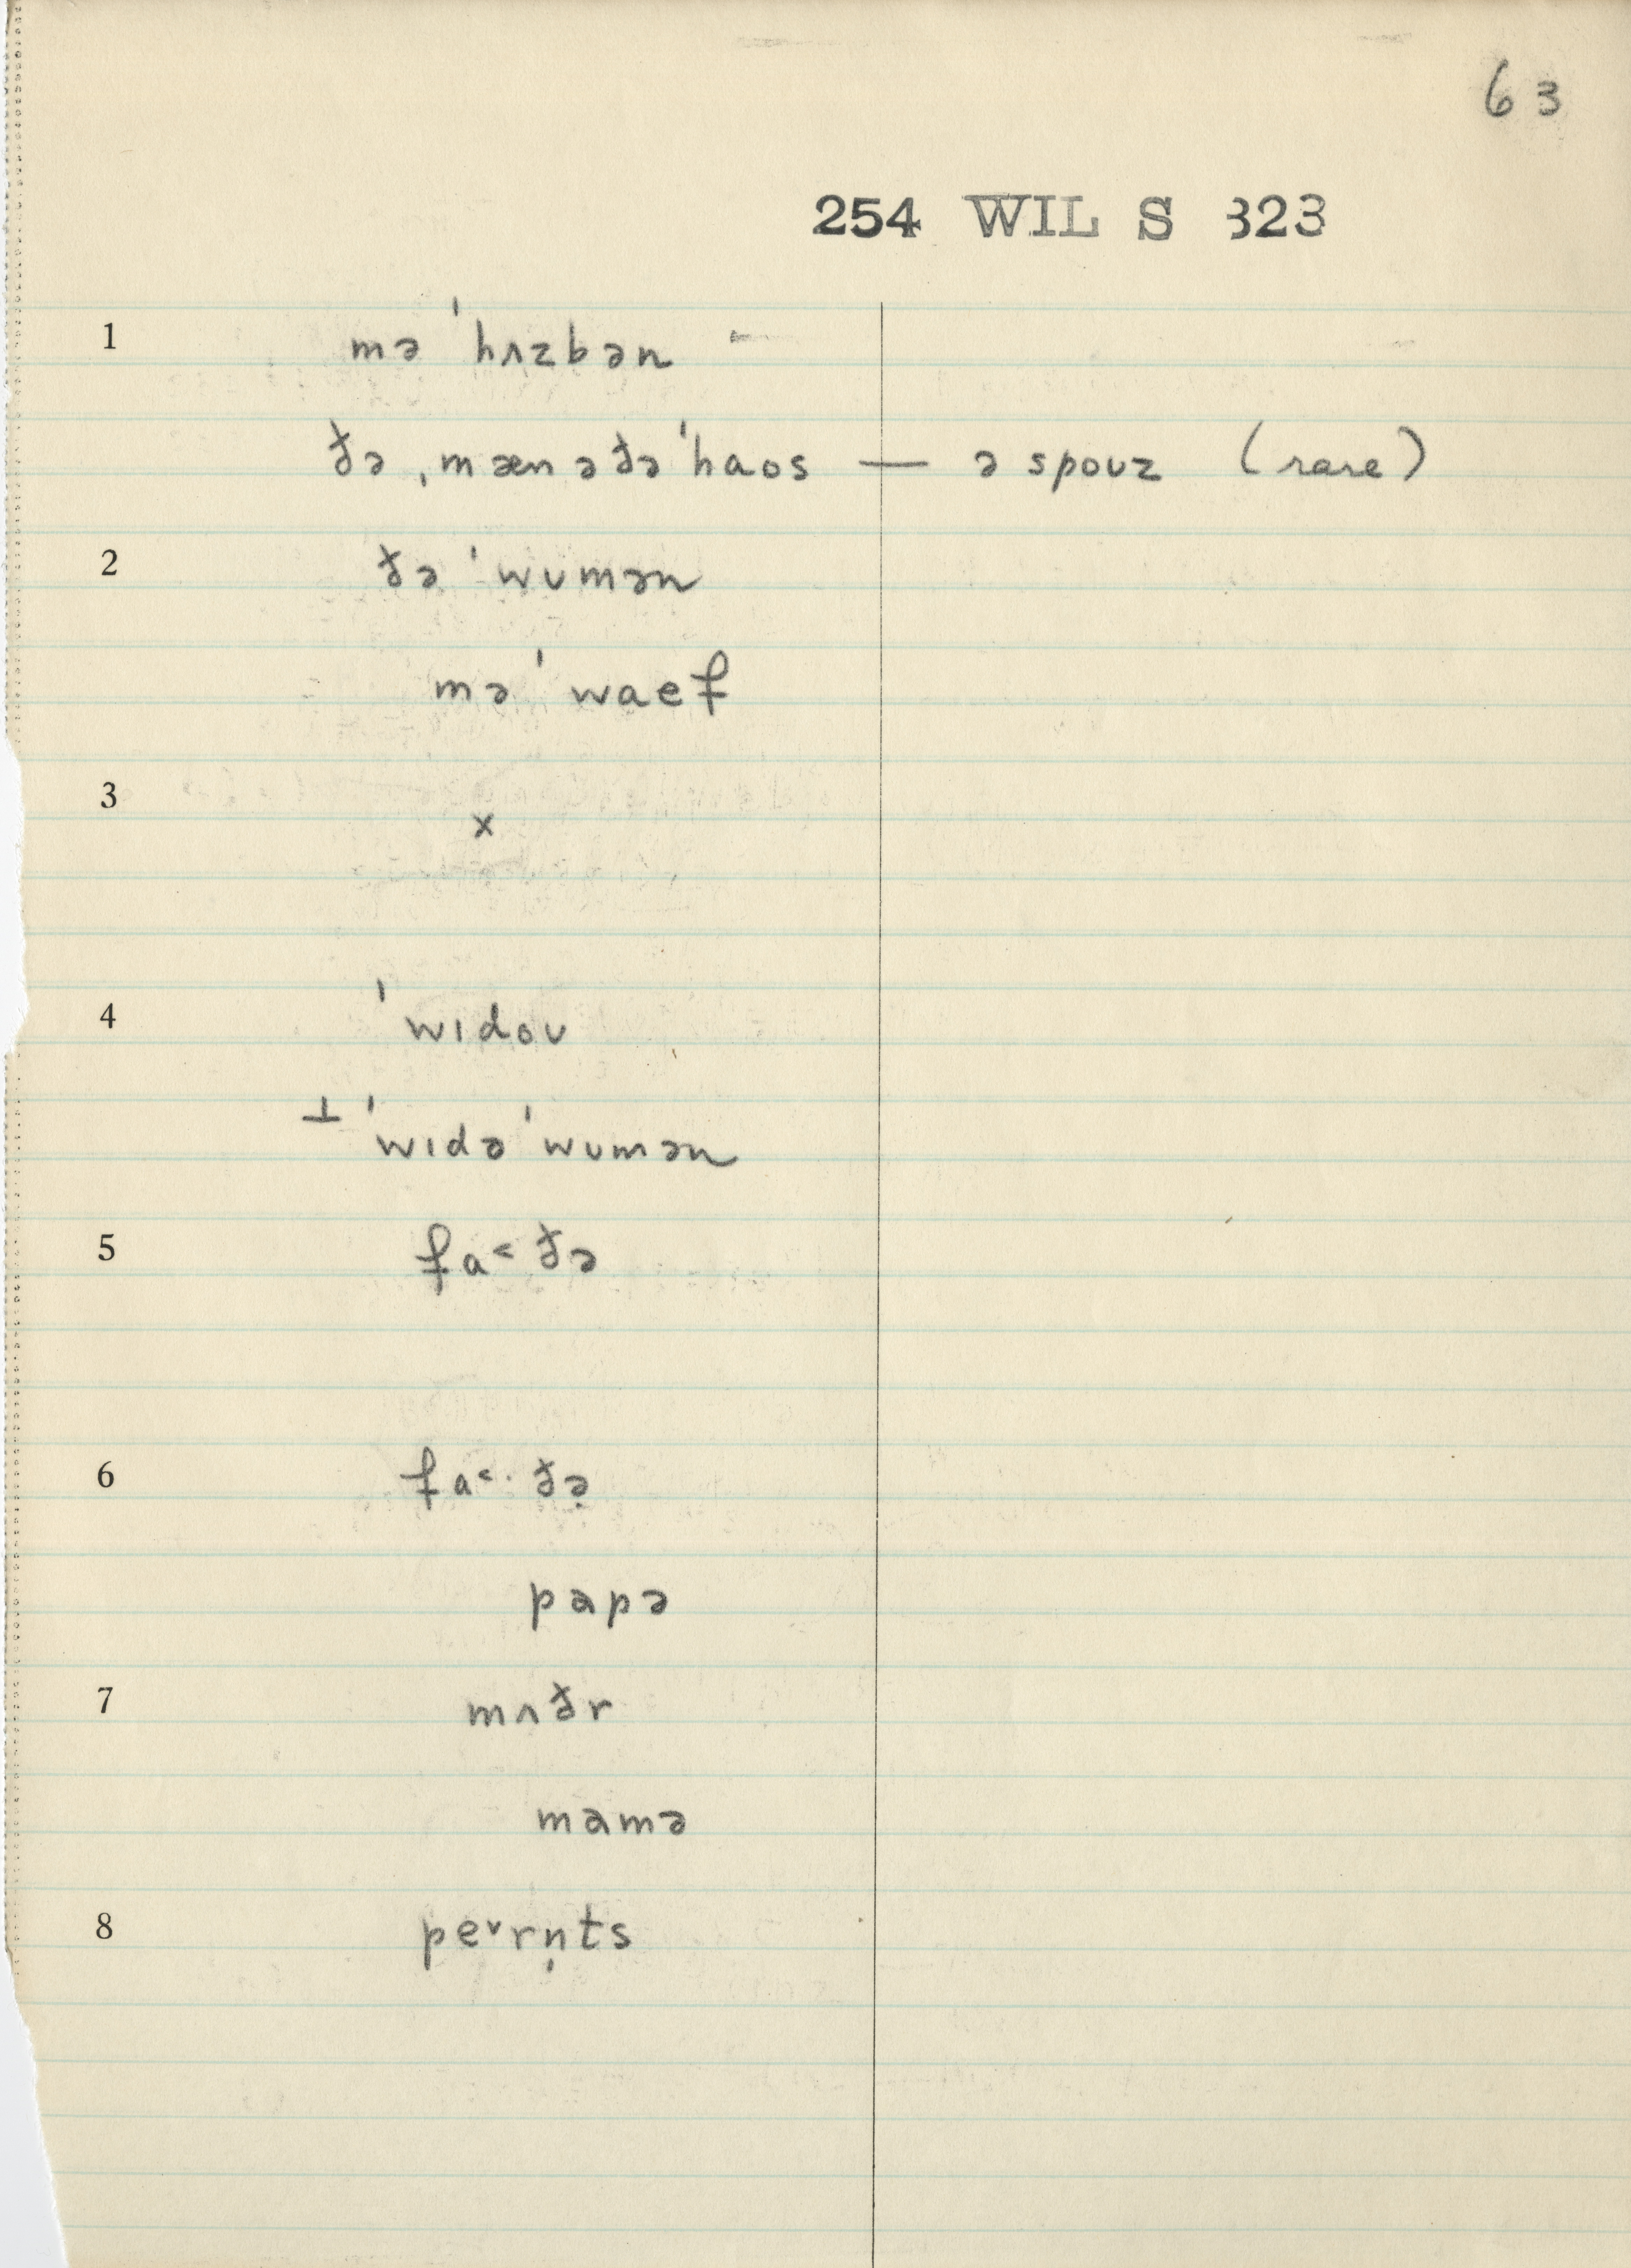 63
254 WIL S 323
1 mə ˈhʌzbən
ðə ˌmæn ə ðə ˈhaos — ə spoʊz (rare)
2 ðə ˈwʊmən
mə ˈwaef
3 x
4 ˈwɪdoʊ
⊥ ˈwɪdə ˈwʊmən
5 fa˂ðə
6 fa˂·ðə̣
papə
7 mʌðr
mamə
8 pe˅rn̩ts